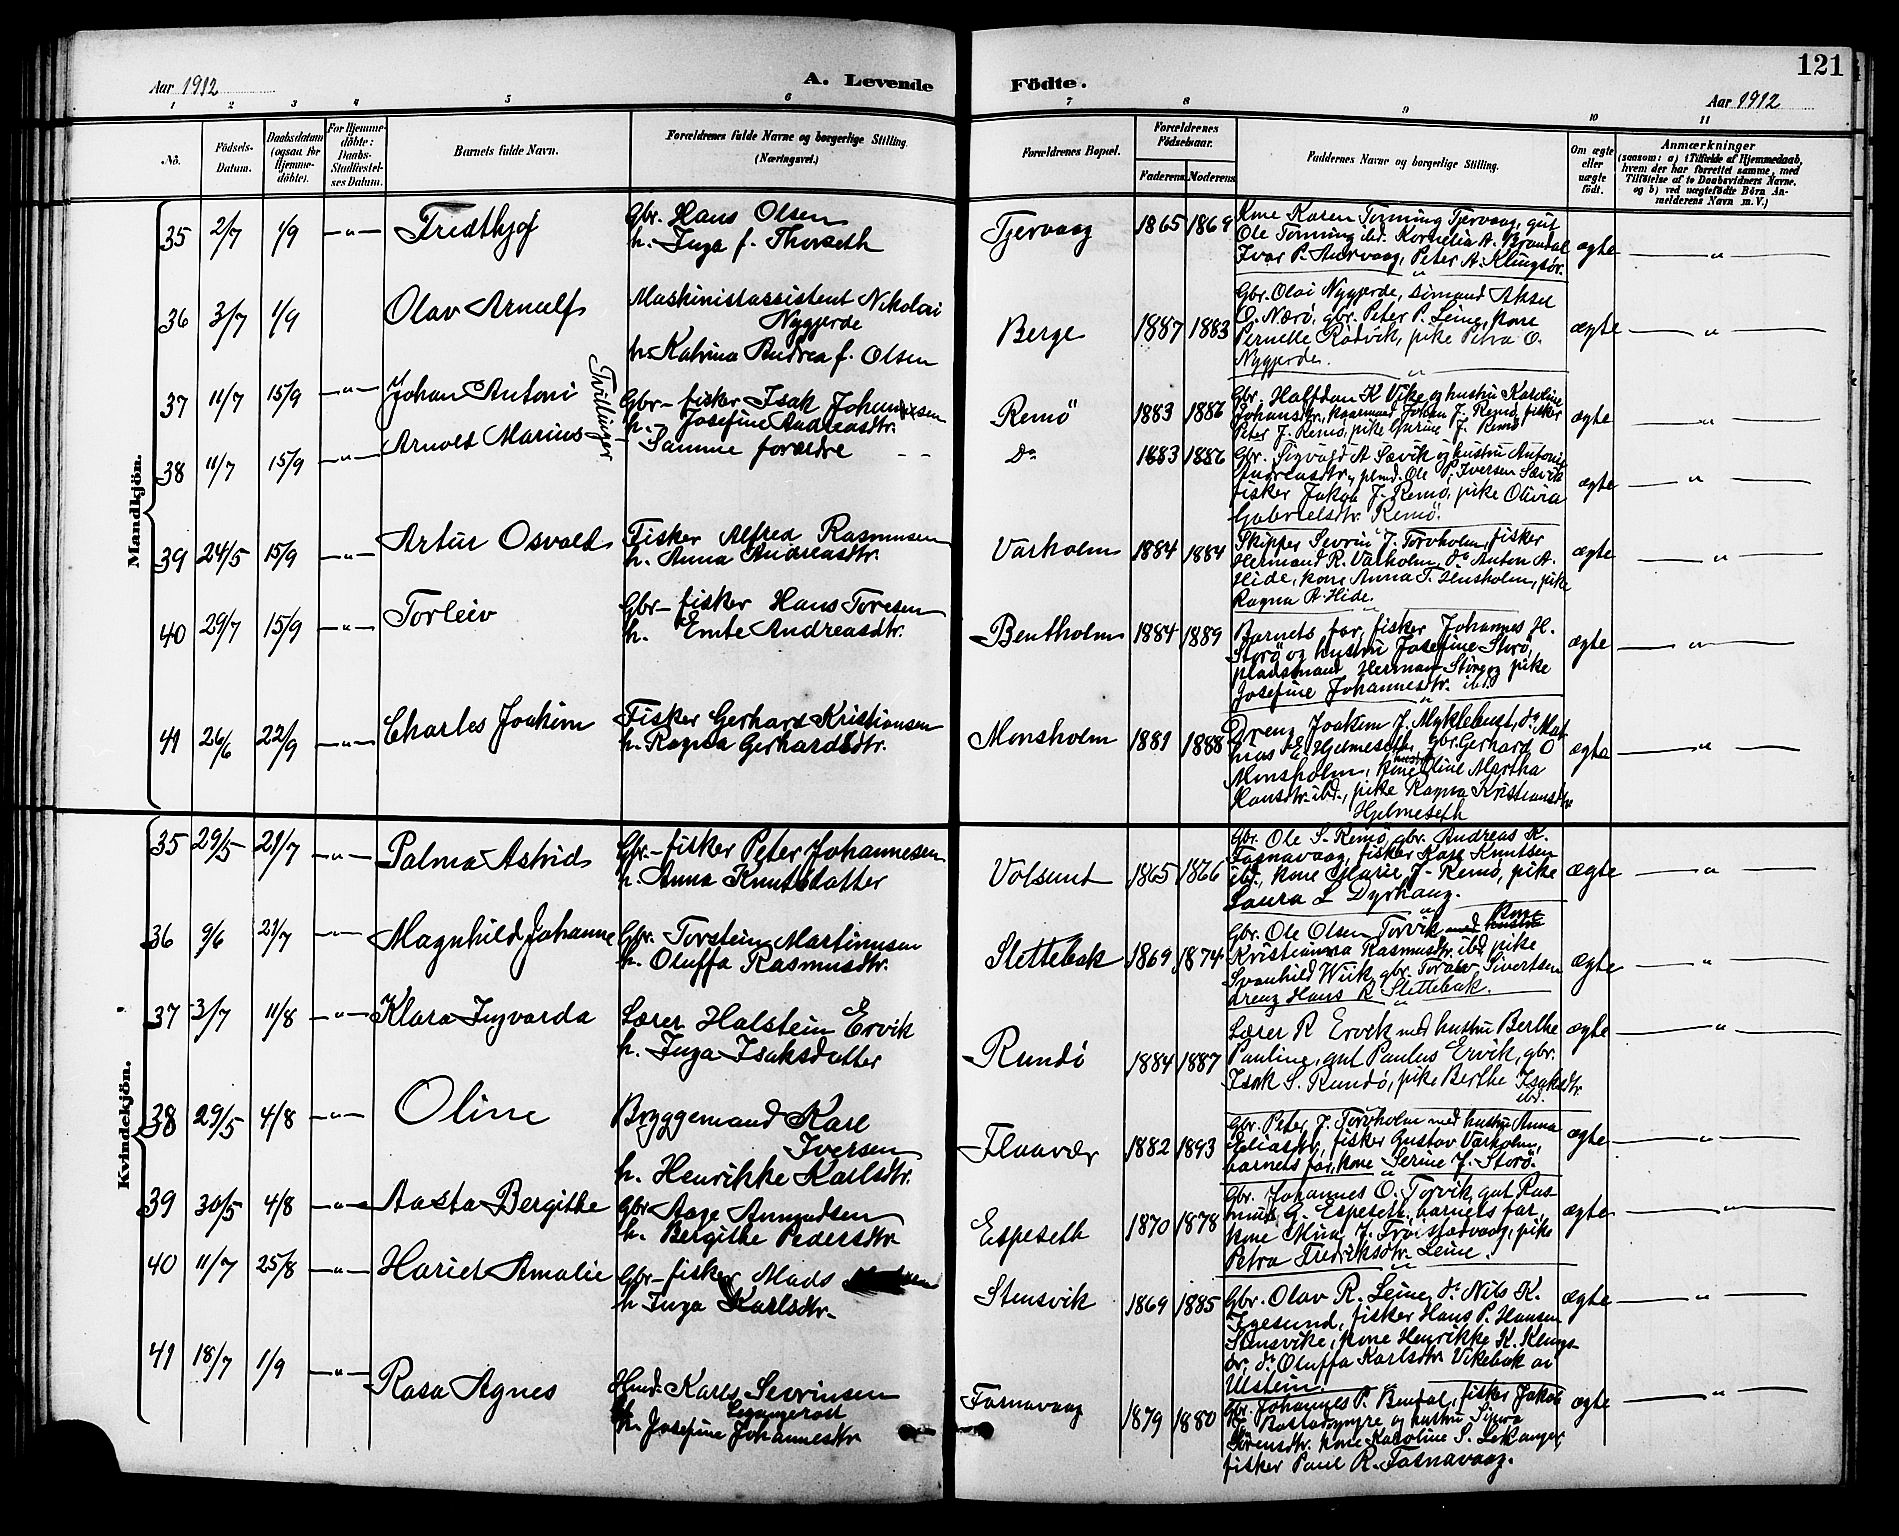 121
Aar 1912
A. Levende
Födte.
Aar 1912
1 2 3 4 5 6 7 8 9 10 11
No.
Födsels-
Datum.
Daabsdatum
(ogsaa for
Hjemme-
döbte).
For Hjemme-
döbte:
Daabs-
Stadfæstel-
ses Datum.
Barnets fulde Navn.
Forældrenes fulde Navne og borgerlige Stilling.
(Næringsvei.)
Forældrenes Bopæl.
Forældrenes
Födselsaar.
Faderens.
Moderens.
Faddernes Navne og borgerlige Stilling.
Om ægte
eller
uægte
født.
Anmærkninger
(saasom: a) i Tilfælde af Hjemmedaab,
hvem der har forrettet samme, med
Tilföielse af to Daabsvidners Navne,
og b) ved uægtefödte Börn An-
melderens Navn m. V.)
Mandkjön.
35 2/7 1/9 -"- Fredthjof
Gbr. Hans Olsen
h. Inga f. Thorseth
Tjervaag 1865 1869
Kone Karen Tonning Tjervaag, gut
Ole Tonning ibd. Kornelia A. Brandal
Ivar P. Aurvaag, Peter A. Klungsör.
ægte "
36 3/7 1/9
Olav Arnulf
Maskinistassistent Nikolai
Nygjerde
h. Katrina Andrea f. Olsen
Berge 1887 1883
Gbr. Olai Nygjerde, sömand Aksel
O. Nærö, gbr. Peter P. Leine, kone
Pernelle Rödvik, pike Petra O.
Nygjerde.
ægte "
37 11/7 15/9 -"- Johan Antoni
Tvillinger
Gbr-fisker Isak Johannesen
h. Josefine Andreasdtr.
Remö 1883 1886
Gbr. Halfdan K Vike og hustru Karoline
Johansdtr., kaarmand Johan J. Remö, fisker
Peter J. Remö, pike Gurine J. Remö
ægte "
38 11/7 15/9 -"- Arnold Marius
Samme forældre
Do 1883 1886
Gbr. Sigvald A Sævik og hustru Antonie
Andreasdtr., plmd. Ole P. Iversen Sævik
fisker Jakob J. Remö, pike Olivia
Gabrielsdtr. Remö.
ægte "
39 24/5 15/9 -"- Artur Osvald
Fisker Alfred Rasmussen
h. Anna Andreasdtr.
Varholm 1884 1884
Skipper Sevrin J. Torvholm, fisker
Hermand R. Varholm, do Anton A.
Hide, kone Anna T. Husholm, pike
Ragna A. Hide.
ægte "
40 29/7 15/9 -"- Torleiv
Gbr-fisker Hans Toresen
h. Emte Andreasdtr.
Bentholm 1884 1889
Barnets far, fisker Johannes H.
Storö og hustru Josefine Storö,
pladsmand Herman Storö og pike
Josefine Johannesdtr. ibd.
ægte "
41 26/6 22/9 -"- Charles Joakim
Fisker Gerhard Kristiansen
h. Ragna Gerhardsdtr.
Monsholm 1881 1888
Dreng Joakim J. Myklebust, do Mat-
hias E. Hjelmeseth, gbr. Gerhard O
Monsholm, hustru Oline Martha
Hansdtr. ibd., pike Ragna Kristiansdtr
Hjelmeseth
ægte "
Kvindekjön.
35 29/5 21/7 -"- Palma Astrid
Gbr.-fisker Peter Johannesen
h. Anna Knutsdatter
Volsund 1865 1866
Gbr. Ole S. Remö, gbr. Andreas K.
Fosnavaag, fisker Kare Knutsen
ibd., kone Marie J. Remö, pike
Laura L Dyrhaug.
ægte "
36 9/6 21/7 -"- Magnhild Johanne
Gbr. Torstein Martinusen
h. Oluffa Rasmusdtr.
Slettebak 1869 1874
Gbr. Ole Olsen Torvik, kone
Kristianna Rasmusdtr. ibd, pike
Svanhild Wiik, gbr. Toralv Sivertsen
dreng Hans R Slettebak.
ægte "
37 3/7 11/8 -"- Klara Ingvarda
Lærer Halstein Ervik
h. Inga Isaksdatter
Rundö 1884 1887
Lærer R Ervik med hustru Berthe
Pauline, gut Paulus Ervik, gbr.
Isak S. Rundö, pike Berthe Isaksdtr.
ibd.
ægte "
38 29/5 4/8 -"- Oline
Bryggemand Karl
Iversen
h. Henrikke Karlsdtr.
Flaavær 1882 1893
Gbr. Peter J. Torvholm med hustru Anna
Eliasdtr., fisker Gustav Varholm,
barnets far, kone Serine J. Storö.
ægte "
39 30/5 4/8 -"- Aasta Bergithe
Gbr Aage Amundsen
h. Bergithe Pedersdtr.
Espeseth 1870 1878
Gbr. Johannes O. Torvik, gut Ras-
mus G. Espeseth, barnets far,
kone Mina J. Tröisfodvaag, pike
Petra Fredriksdtr. Leine.
ægte "
40 11/7 25/8 -"- Hariet Amalie
Gbr-fisker Mads
h Inga Karlsdtr.
Stensvik 1869 1885
Gbr. Olav R. Leine, do Nils K.
Egesund, fisker Hans P. Hansen
Stensvike, kone Henrikke K. Klungs-
ör, do Oluffa Karlsdtr. Vikebak av
Ulstein.
ægte "
41 18/7 1/9 -"- Rasa Agnes
Hmd. Karls Sevrinsen
h. Josefine Johannesdtr
Fosnavaag 1879 1880
Gbr. Johannes P. Bendal, fisker Jakob
Baatadsynyre og hustru Signa
Sörensdtr. kone Karoline S. Lekanger,
fisker Paul R. Fosnavaag.
ægte "